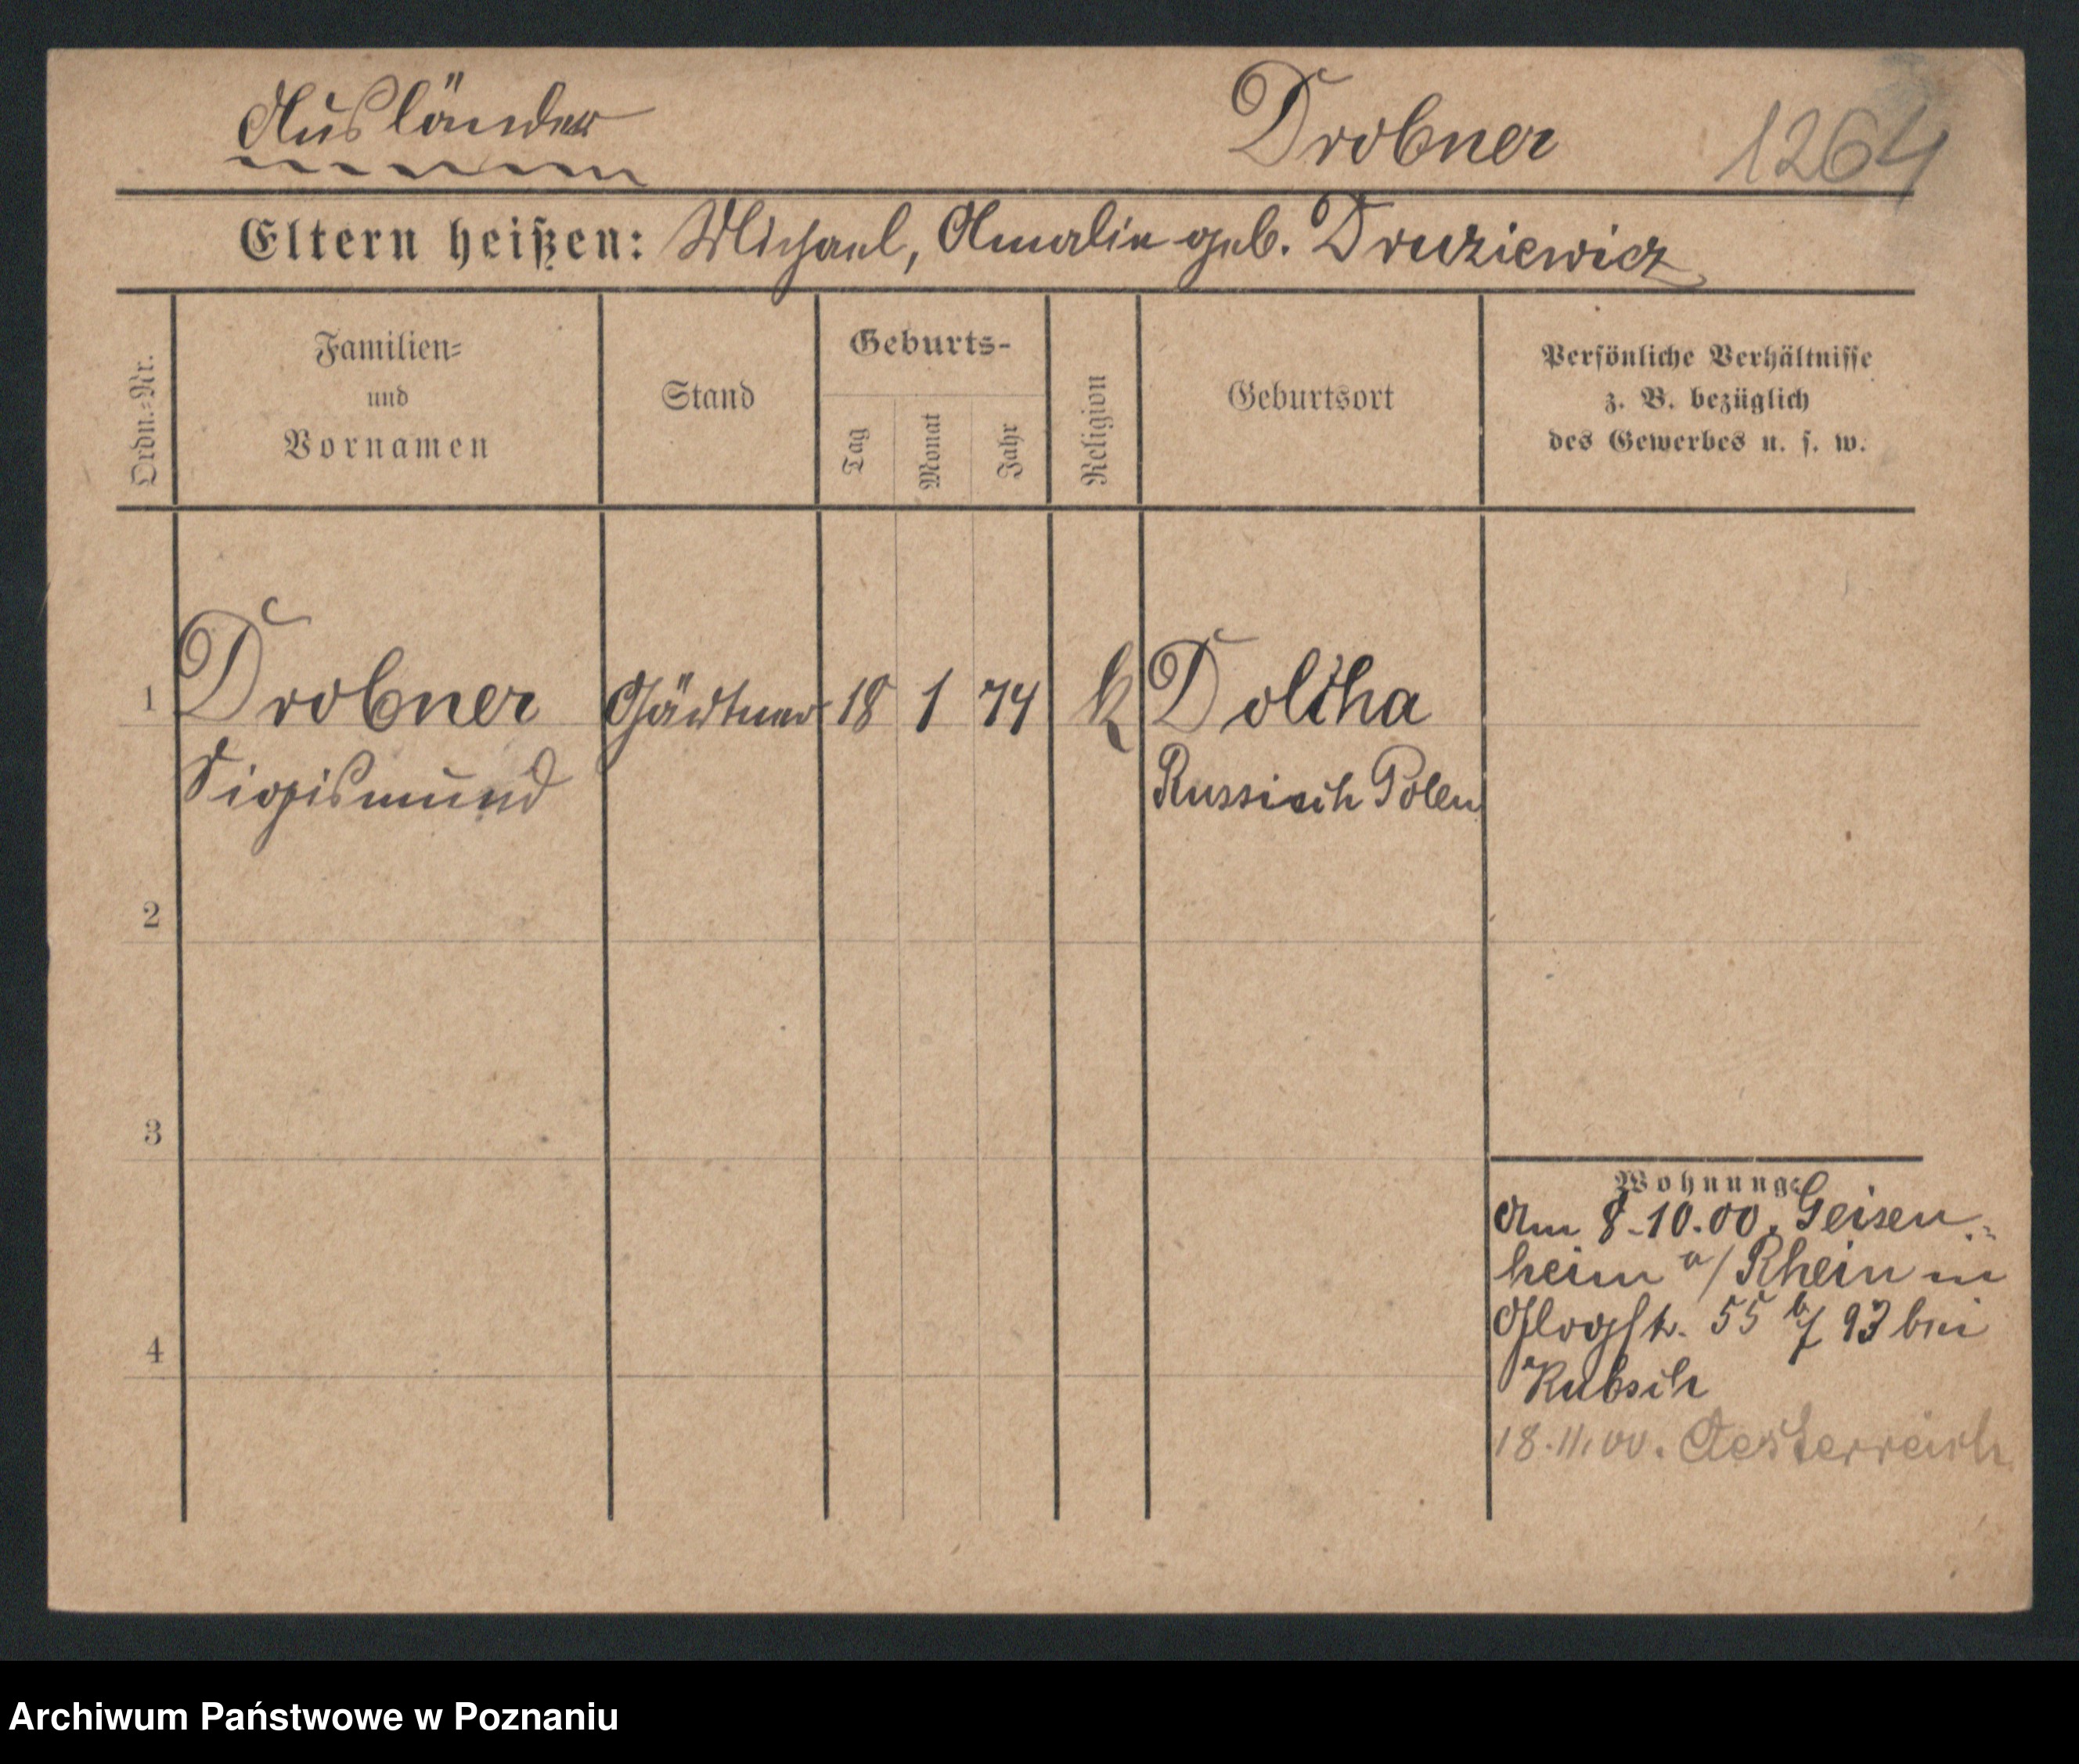 Ausländer
Drobner
1264
Eltern heißen: Michael, Amalie geb. Druziewicz
Ordn.=Nr.
Familien=
und
Vornamen
Stand
Geburts-
Tag
Monat
Jahr
Religion
Geburtsort
Persönliche Verhältnisse
z. B. bezüglich
des Gewerbes u. s. w.
1 Drobner Gärtner 18 1 74 k Doltha
Sigismund Russisch Polen
2
3
4
Wohnung:
Am 8-10.00. Geisen=
heim a/Rhein in
55 93 bei
Kubsch
18.11.00. Oesterreich
Archiwum Państwowe w Poznaniu